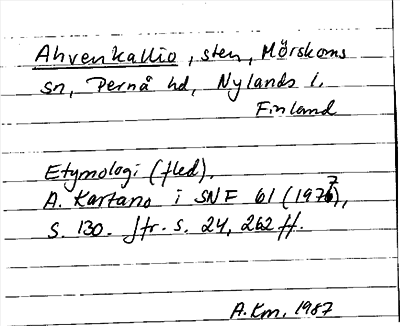 Ahvenkallio, sten, Mörskoms
sn, Pernå hd, Nylands l.
Finland
Etymologi (fled).
A. Kartano i SNF 61 (1977),
s. 130. Jfr. s. 24, 262 ff.
A.Km. 1987